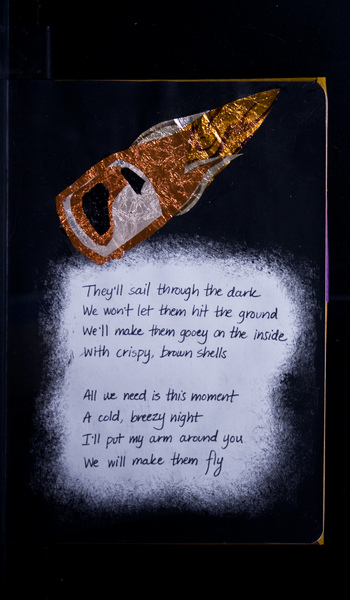 They'll sail through the dark
We won't let them hit the ground
We'll make them gooey on the inside
With crispy, brown shells
All we need is this moment
A cold, breezy night
I'll put my arm around you
We will make them fly